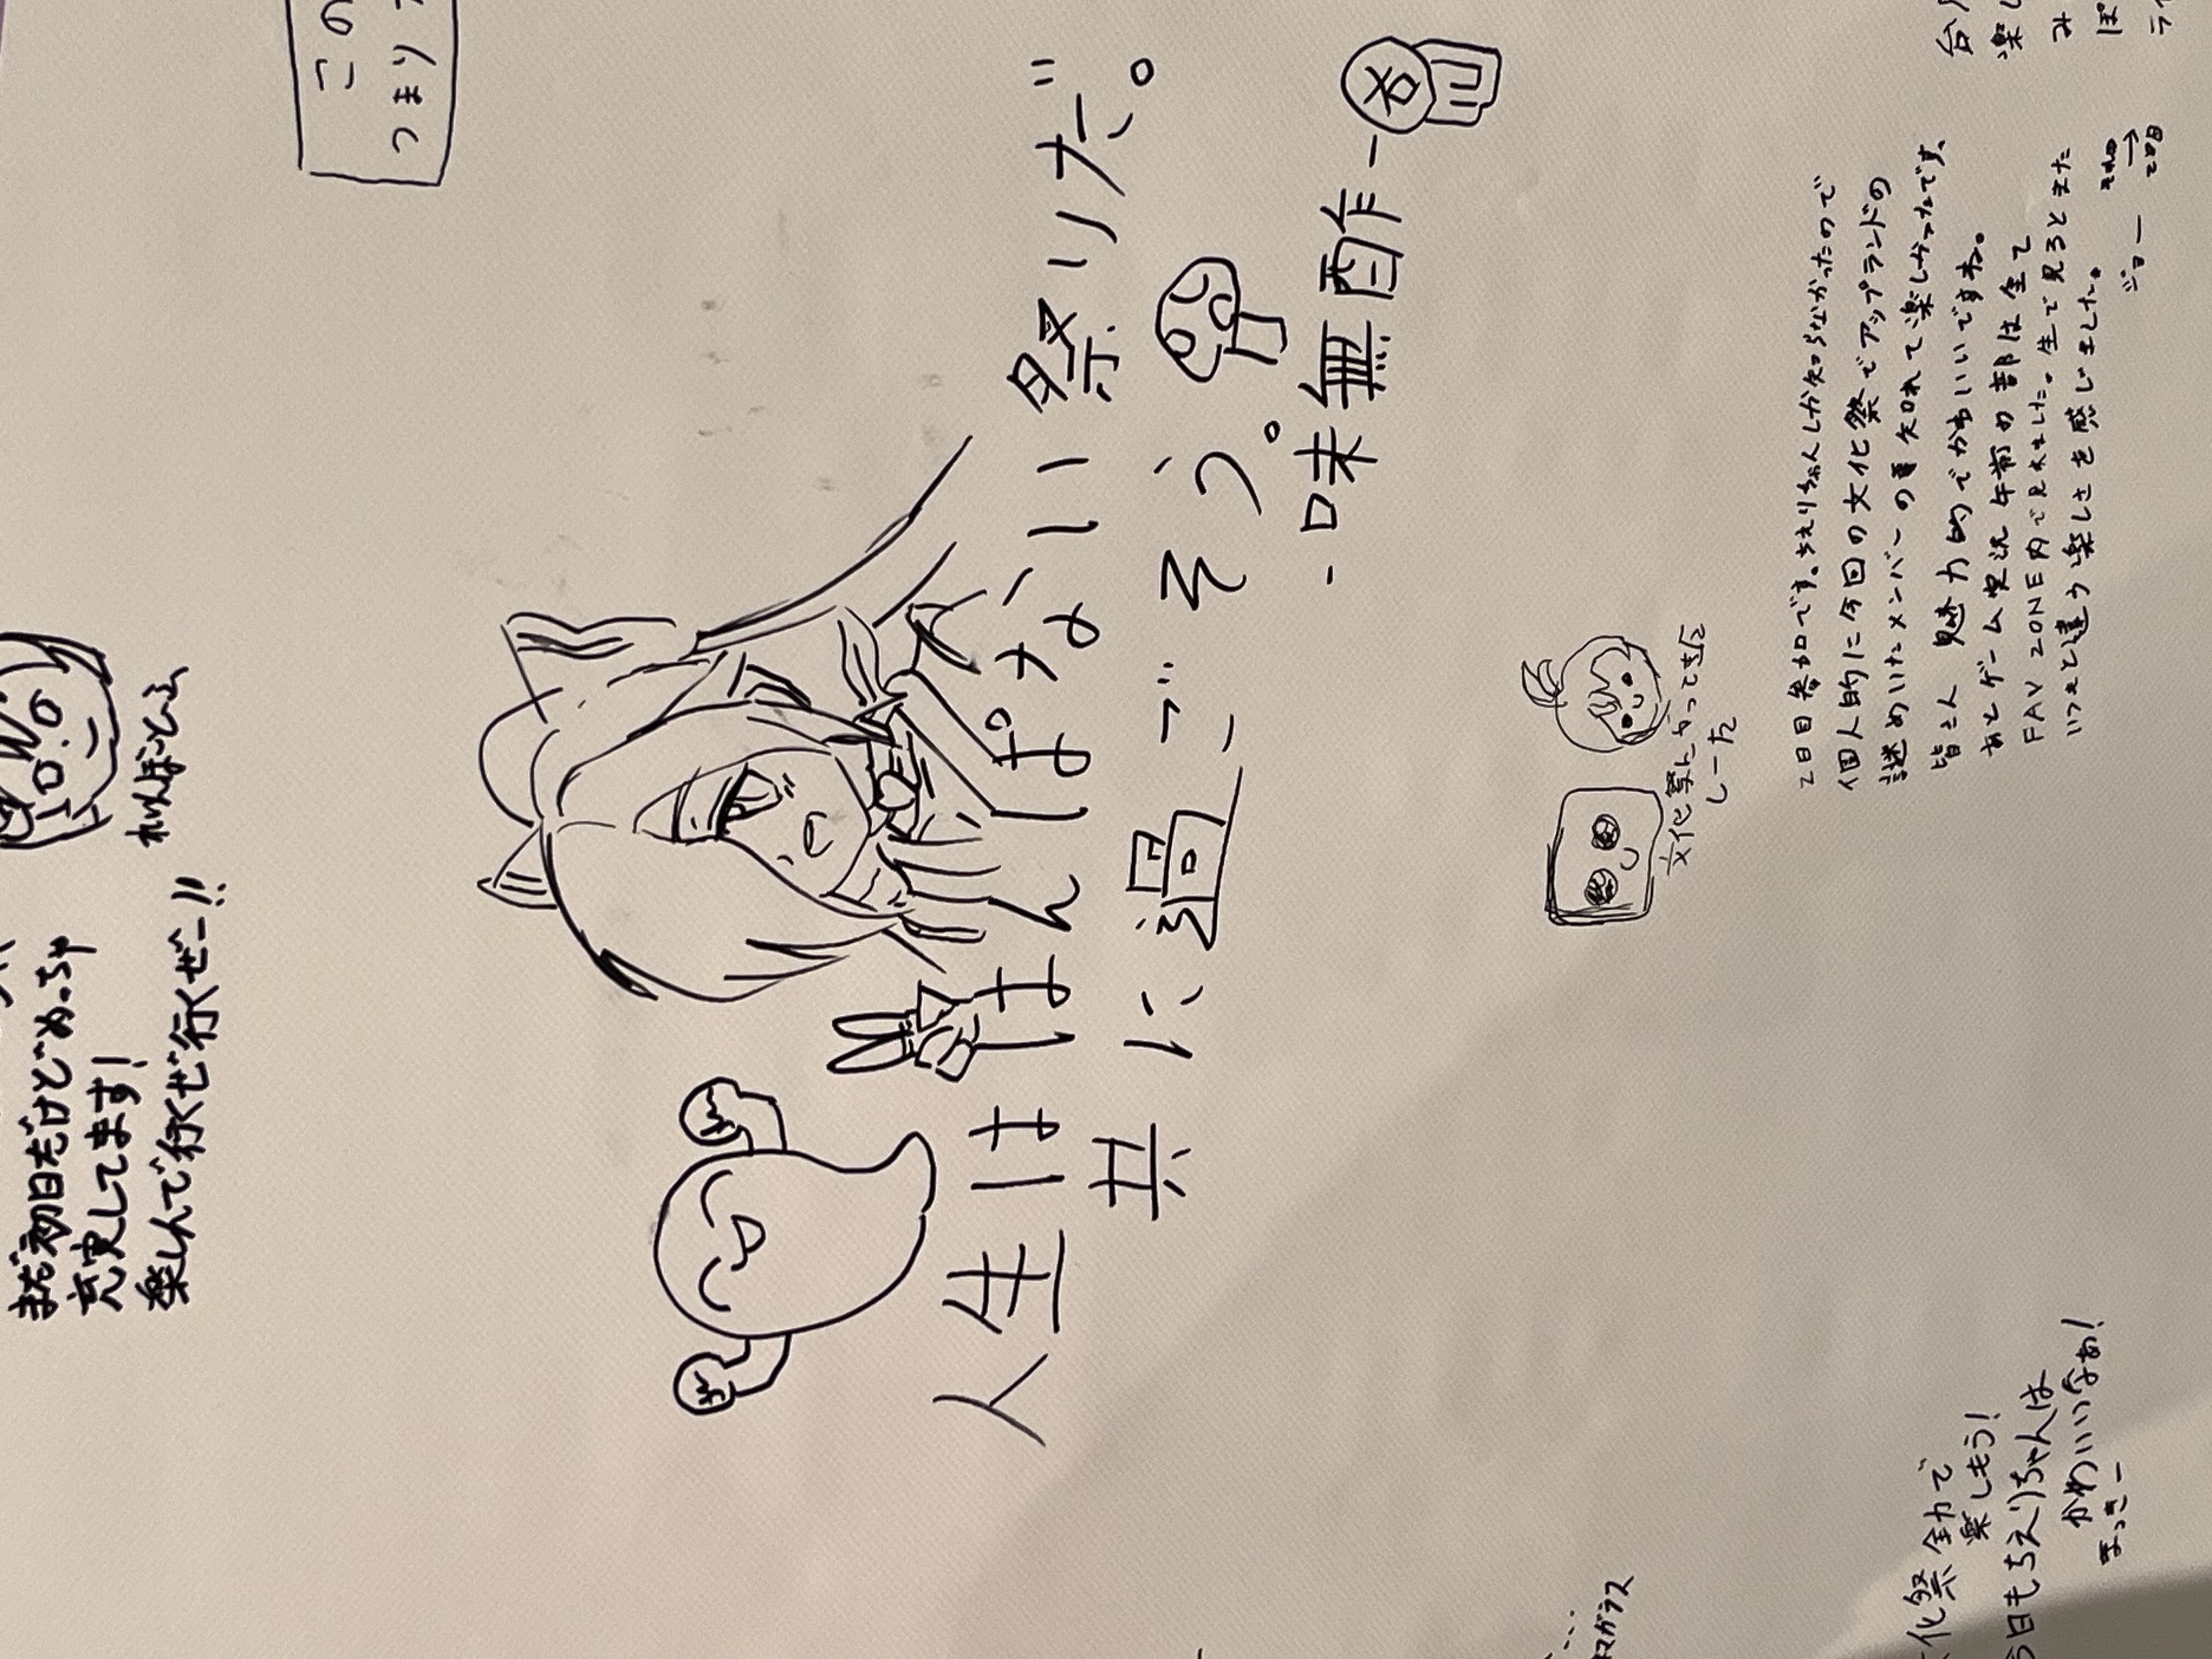 この
つまり
れいんぼーとふ
まだ初日だけどめっちゃ
充実してます!
楽しんで行くぜ行くぜー!!
人生ははんぱない祭りだ。
共に過ごそう。
-味無酢-
文化祭んがってきた
しーた
2日目参加です。ちえりちゃんしか知らなかったので
個人的に今回の文化祭でアップランドの
謎めいたメンバーの事知れて楽しかったです。
皆さん魅力的でかわいいですね。
あとゲーム実況午前の部は全て
FAV ZONE内で見れました。生で見るとまた
いつもと違う楽しさを感じました。
ジョー
それの→2日目
化祭全力で
楽しもう!
日もちえりちゃんは
かわいいなぁ!
まっきー
マガラス